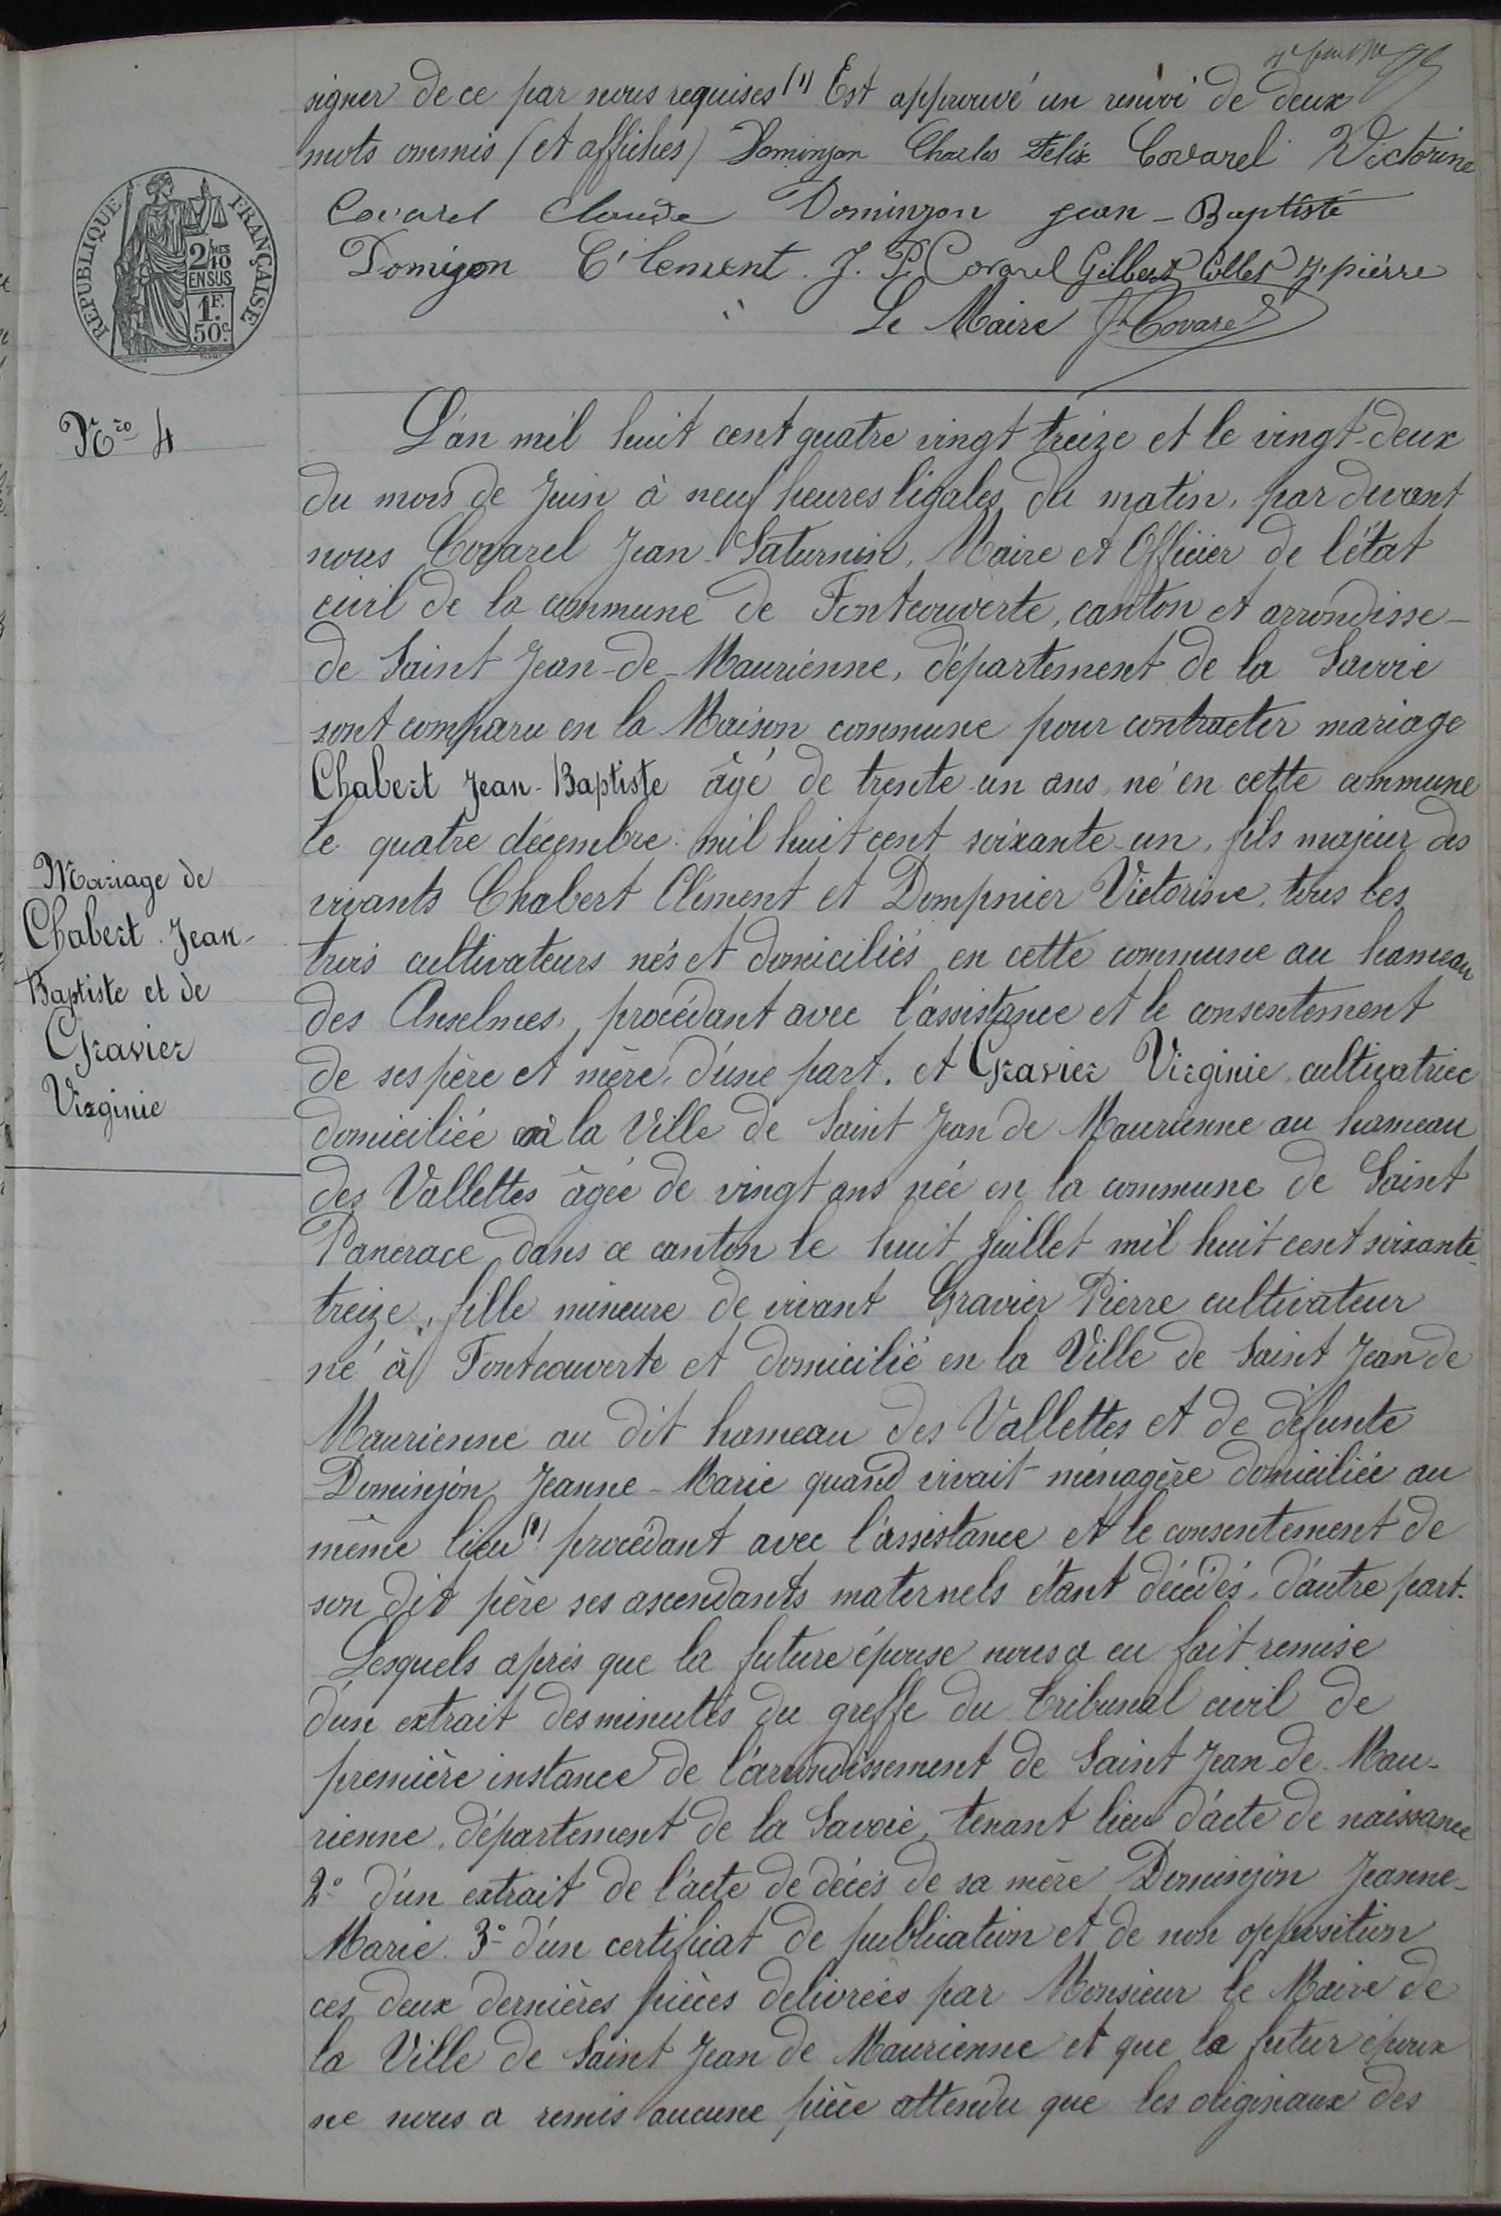 signer de ce par nous requises (1) Est approuvé un renvoi de deux
mots ommis (et affiches) Dominjon Charles Félix Covarel Victorine
Covarel Claude Dominjon jean-Baptiste
Domijon Clement. J. P. Covarel Gilbert Collet J. pièrre
Le Maire J. Covarel
RÉPUBLIQUE FRANÇAISE
2/10
EN SUS
1 F.
50 c.
Nro 4
L'an mil huit cent quatre vingt treize et le vingt-deux
du mois de Juin à neuf heures légales du matin, par devant
nous Covarel Jean-Saturnin, Maire et Officier de l'état
civil de la commune de Fontcouverte, canton et arrondisse-
de Saint Jean-de-Maurienne, département de la Savoie
sont comparu en la Maison commune pour contracter mariage
Chabert Jean-Baptiste âgé de trente-un ans, né en cette commune
le quatre décembre mil huit cent soixante-un, fils majeur des
vivants Chabert Clément et Dompnier Victorine, tous les
trois cultivateurs nés et domiciliés en cette commune au hameau
des Anselmes, procédant avec l'assistance et le consentement
de ses père et mère, d'une part. et Gravier Virginie cultivatrice
domiciliée à la Ville de Saint Jean de Maurienne au hameau
des Vallettes âgée de vingt ans née en la commune de Saint
Pancrace, dans ce canton le huit Juillet mil huit cent soixante-
treize, fille mineure de vivant Gravier Pierre cultivateur
né à Fontcouverte et domicilié en la Ville de Saint Jean de
Maurienne au dit hameau des Vallettes et de défunte
Dominjon Jeanne-Marie quand vivait ménagère domiciliée au
même lieu (1) procédant avec l'assistance et le consentement de
son dit père ses ascendants maternels étant décédés, d'autre part.
Lesquels après que la future épouse nous a eu fait remise
d'un extrait des minutes du greffe du tribunal civil de
première instance de l'arrondissement de Saint Jean de Mau-
rienne, département de la Savoie, tenant lieu d'acte de naissance
2° d'un extrait de l'acte de décès de sa mère Dominjon Jeanne-
Marie 3° d'un certificat de publication et de non opposition
ces deux dernières pièces delivrées par Monsieur le Maire de
la Ville de Saint Jean de Maurienne et que le futur époux
ne nous a remis aucune pièce attendu que les originaux des
Mariage de
Chabert Jean-
Baptiste et de
Gravier
Virginie